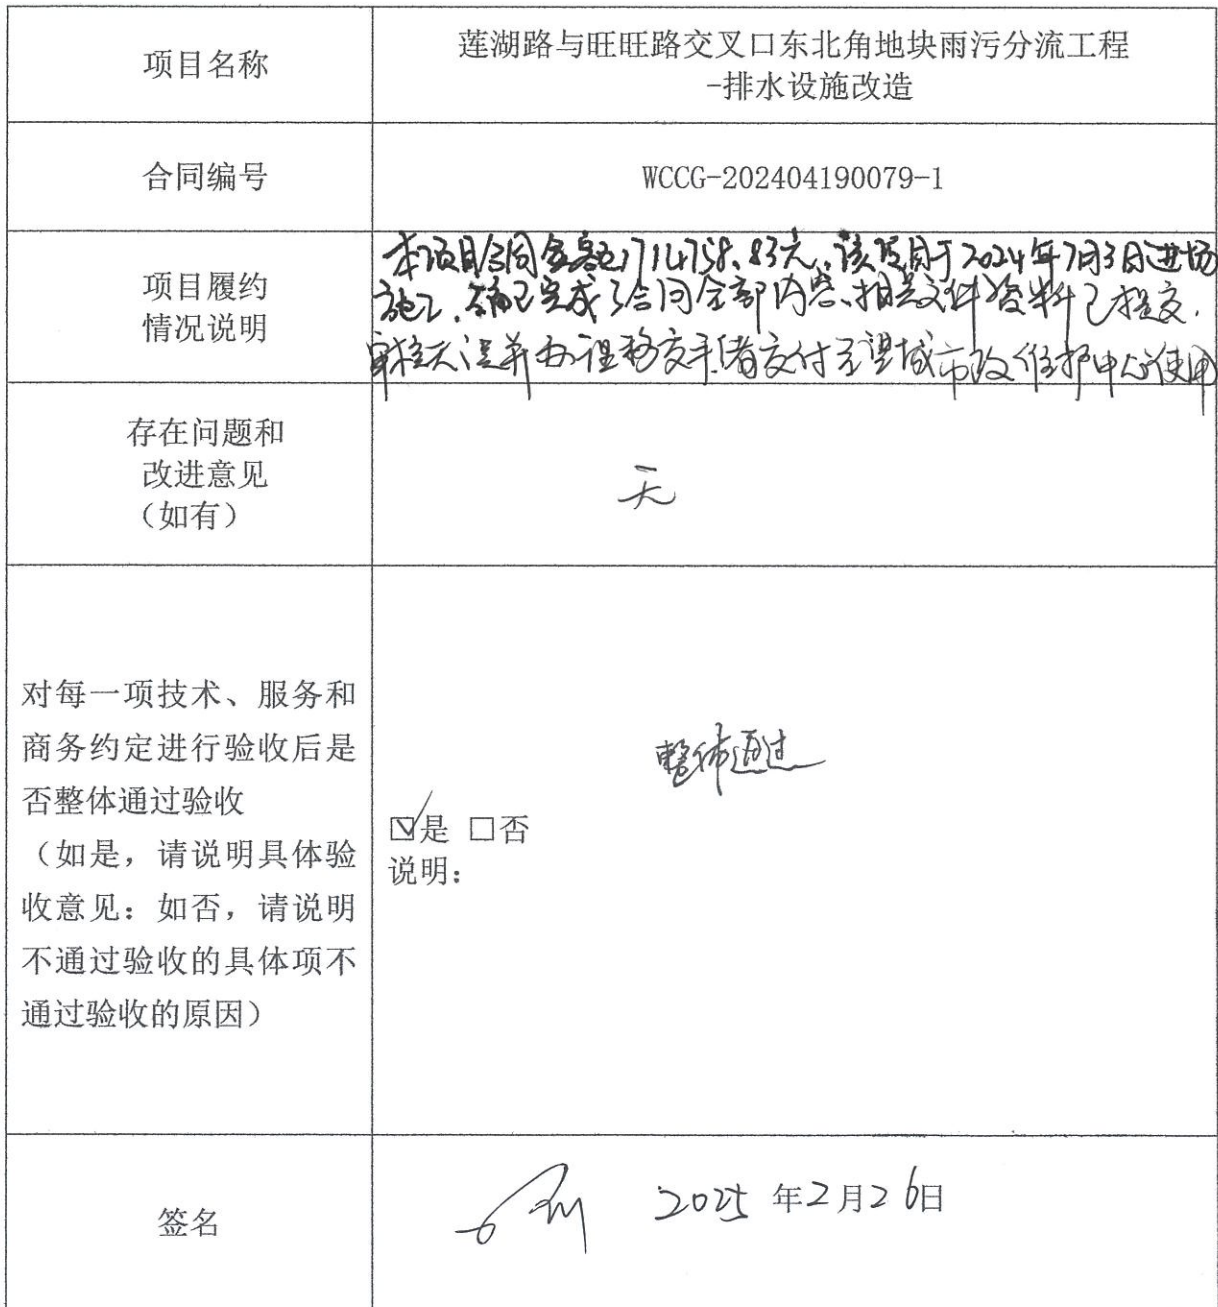 项目名称
莲湖路与旺旺路交叉口东北角地块雨污分流工程
-排水设施改造
合同编号
WCCG-202404190079-1
项目履约
情况说明
本项目合同金额1714758.83元,该项目于2024年7月3日进场
施工,确已完成了合同全部内容、相关文件资料已提交,
审核无误并办理移交手续交付至望城市政维护中心使用
存在问题和
改进意见
(如有)
无
对每一项技术、服务和
商务约定进行验收后是
否整体通过验收
(如是,请说明具体验
收意见:如否,请说明
不通过验收的具体项不
通过验收的原因)
整体通过
☑是 □否
说明:
签名
2025年2月26日